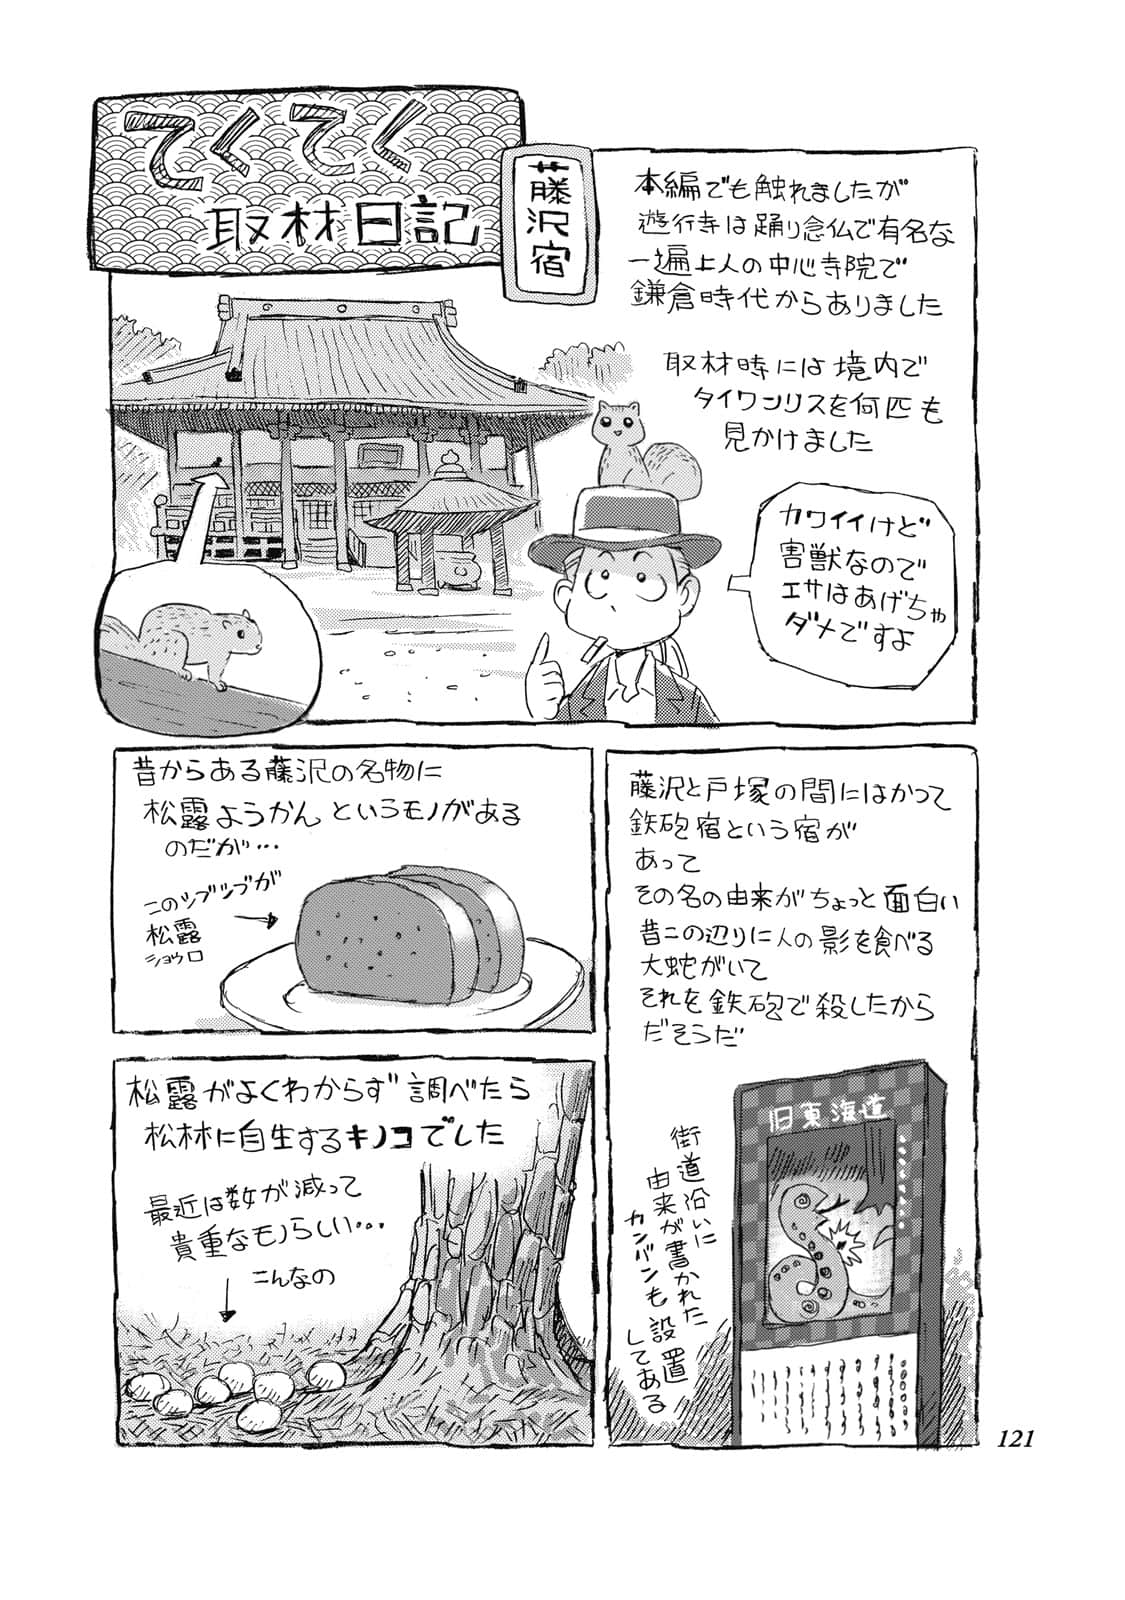 てくてく
取材日記
藤沢宿
本編でも触れましたが
遊行寺は踊り念仏で有名な
一遍上人の中心寺院で
鎌倉時代からありました
取材時には境内で
タイワンリスを何匹も
見かけました
カワイイけど
害獣なので
エサはあげちゃ
ダメですよ
昔からある藤沢の名物に
松露ようかんというモノがある
のだが…
このツブツブが
松露
ショウロ
松露がよくわからず調べたら
松林に自生するキノコでした
最近は数が減って
貴重なモノらしい…
こんなの
藤沢と戸塚の間にはかつて
鉄砲宿という宿が
あって
その名の由来がちょっと面白い
昔この辺りに人の影を食べる
大蛇がいて
それを鉄砲で殺したから
だそうだ
街道沿いに
由来が書かれた
カンバンも設置
してある
旧東海道
121